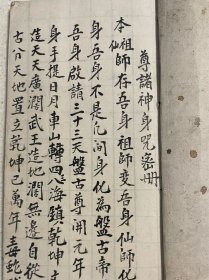 尊諸神身咒密冊
本祖師存吾身祖師変吾身仙師化
仙
身吾身不是凢间身化為盤古帝
吾身啟請三十三天盤古尊開元年
身手提日月車山轉四海鎮乾坤
造天天廣濶武王造地濶無邊自從
古分天地置立乾坤已萬年毒蛇